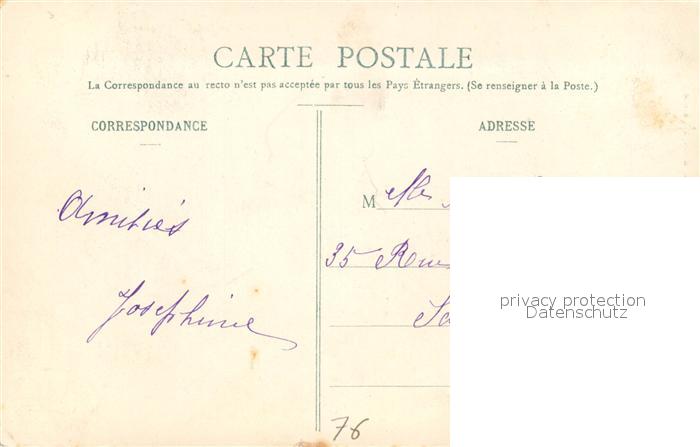 CARTE POSTALE
La Correspondance au recto n'est pas acceptée par tous les Pays Étrangers. (Se renseigner à la Poste.)
CORRESPONDANCE
ADRESSE
Amitiés
Joséphine
M
35 Rue
privacy protection
Datenschutz
76